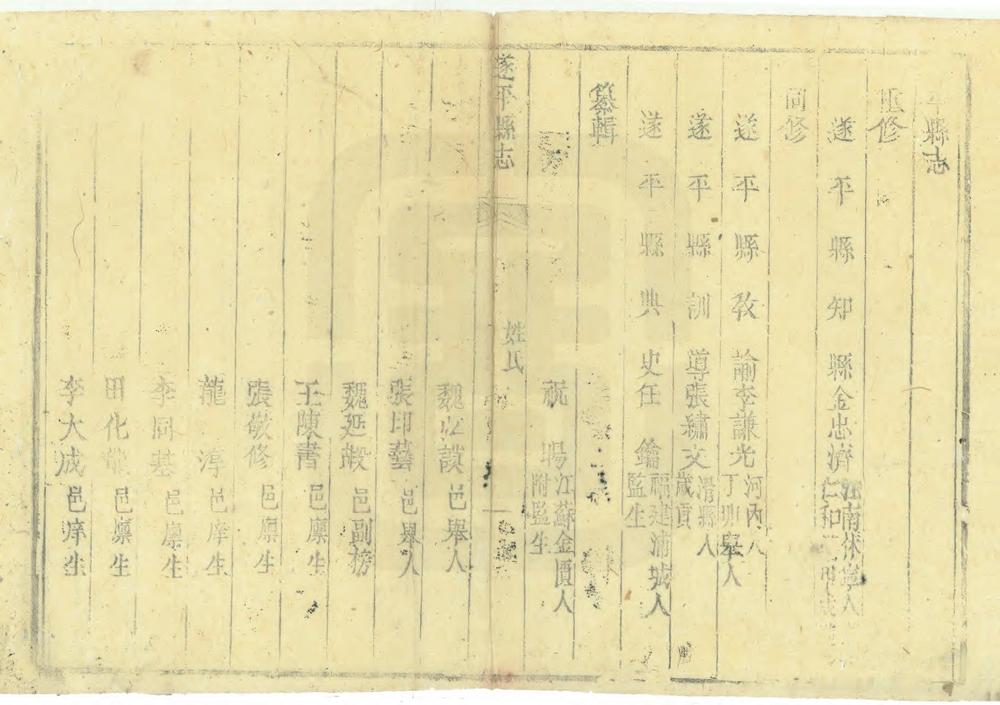 平縣志
重修
遂平縣知縣金忠濟 江南休寧人
仁和
同修
遂平縣教諭李謙光 河內人
丁卯舉人
遂平縣訓導張繡文 滑縣人
歲貢
遂平縣典史任鑰 福建浦城人
監生
纂輯
祝 江蘇金匱人
附監生
遂平縣志 姓氏
魏 談 邑舉人
張印藝 邑舉人
魏延嘏 邑副榜
王陳書 邑廩生
張敬修 邑廩生
龍淳 邑庠生
李同基 邑廩生
田化 邑廩生
李大成 邑庠生